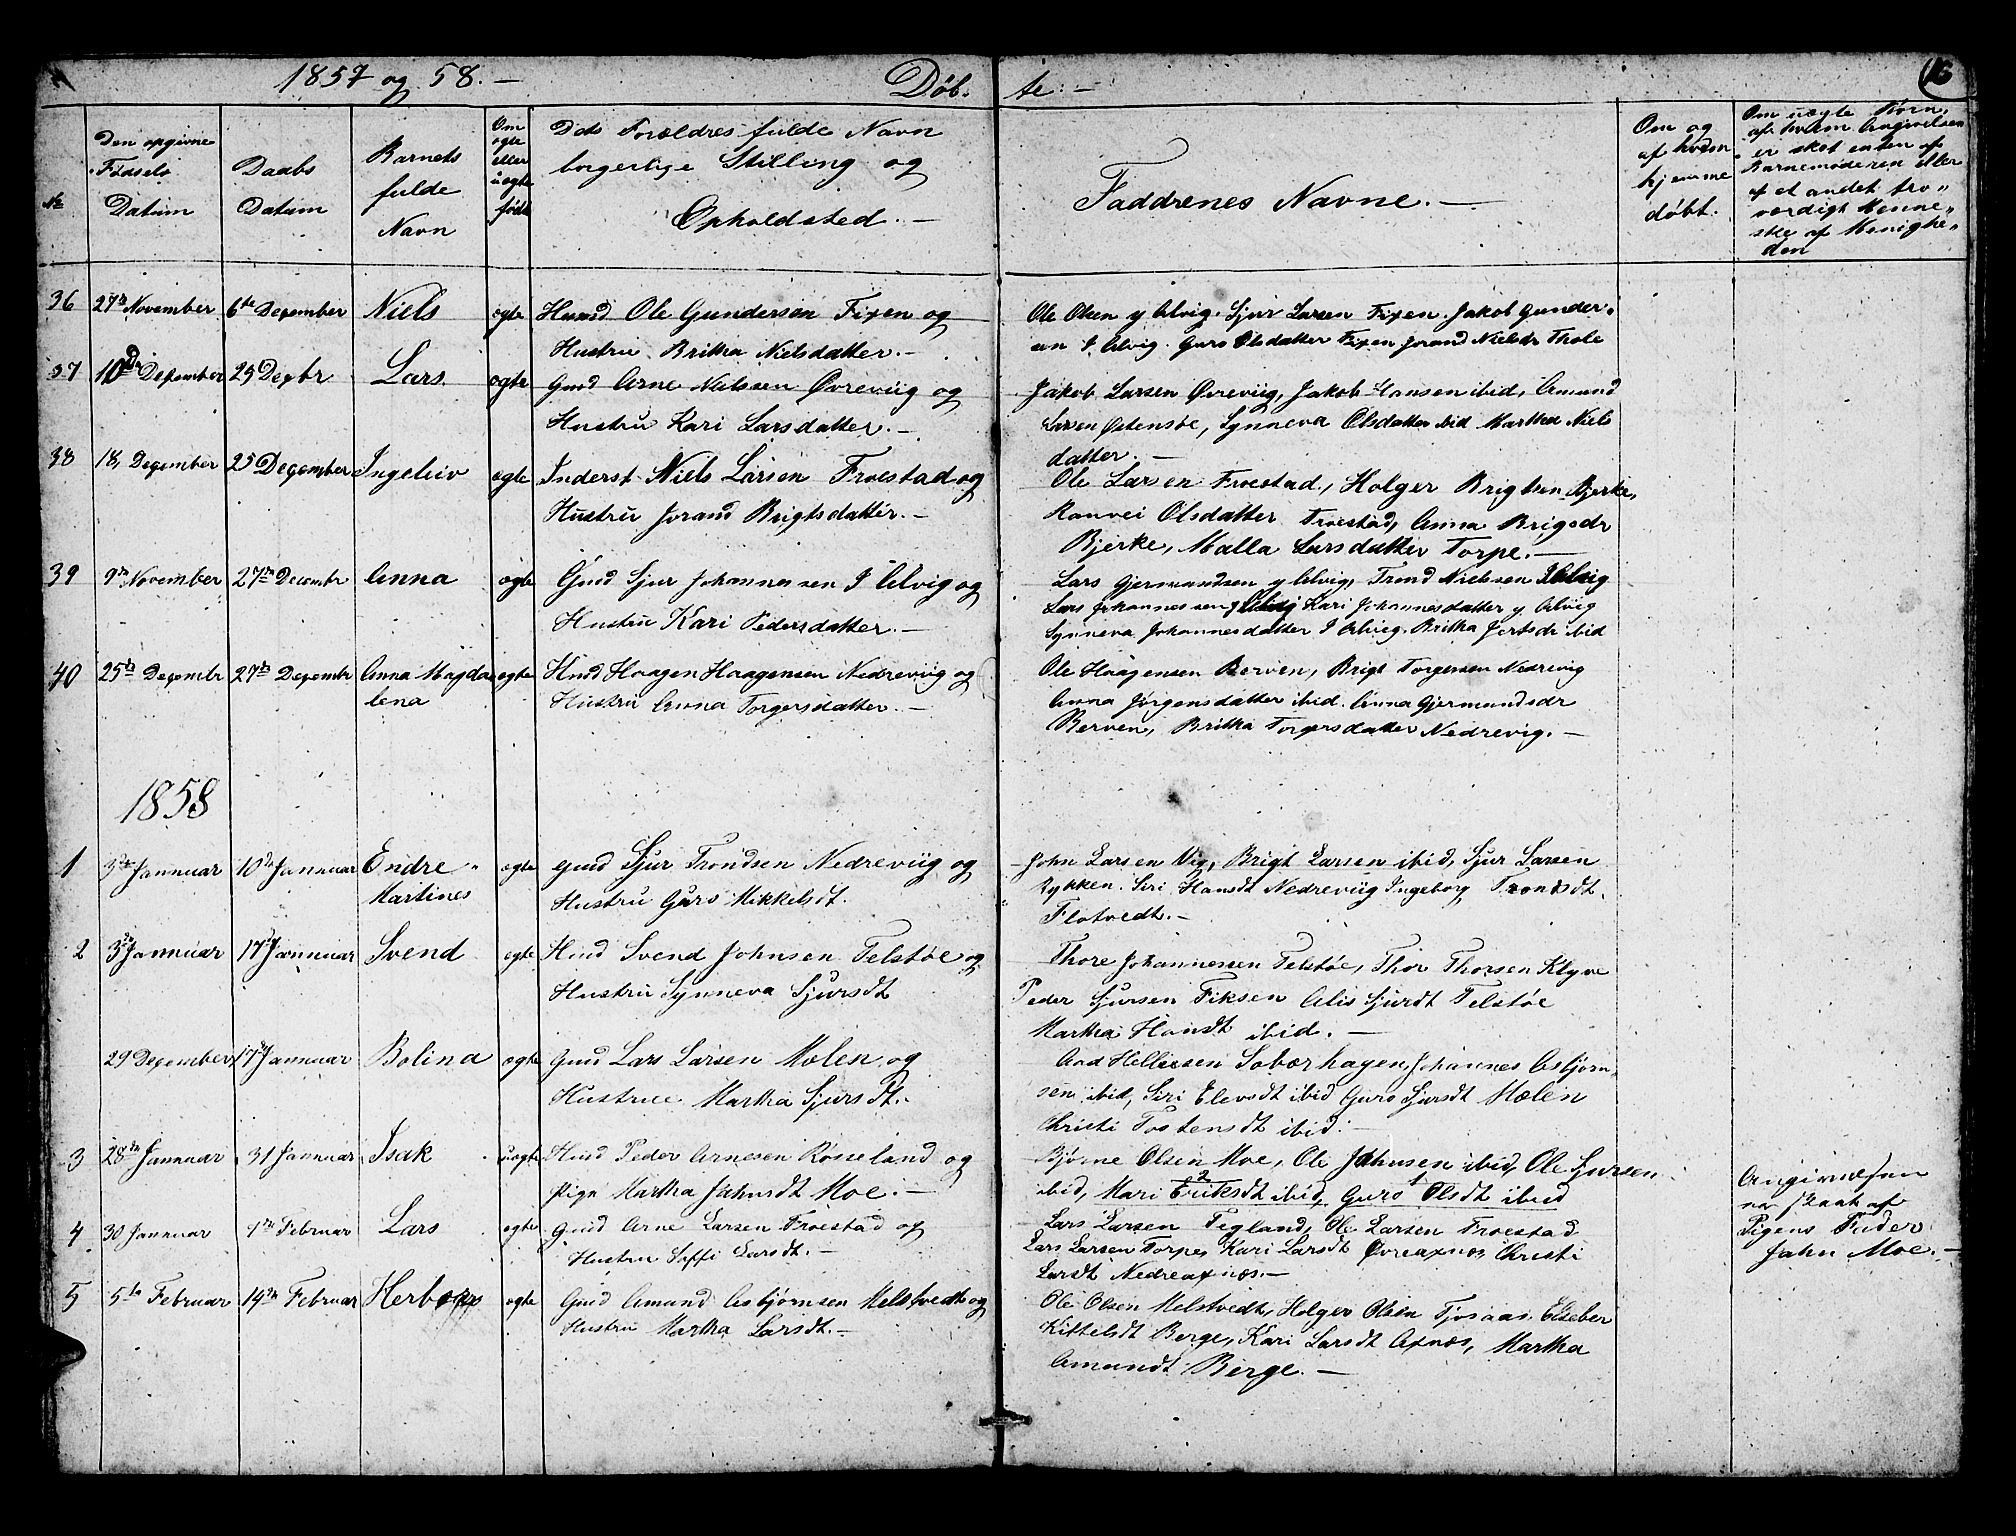 1857 og 58. —
Døb. te. —
16
№
Den opgivne Fødsels Datum
Daabs Datum
Barnets fulde Navn
Om ægte eller uægte født
Dets Forældres fulde Navn borgerlige Stilling og Opholdsted. —
Faddrenes Navne. —
Om og af hvem hjemme døbt.
Om uægte Børn, af hvem Angivelsen er sket enten af Barnemoderen eller af et andet troværdigt Menneske af Menigheden
36 27de November 6te December Niels ægte Huusd Ole Gundersen Fixen og
Hustru Britha Nielsdatter. —
Ole Olsen y Alvig. Sjur Larsen Fixen. Jakob Gunder-
sen I. Alvig. Guro Olsdatter Fixen Jorand Nielsdr Thole
37 10de December 25 Decbr Lars ægte Gmd Arne Nielssen Øvreviig og
Hustru Kari Larsdatter. —
Jakob Larsen Øvreviig, Jakob Hansen ibid, Amund
Larsen Østensøe, Synneva Olsdatter ibid Martha Niels
datter. —
38 18, December 25 December Ingeleiv ægte Inderst Niels Larsen Froestad og
Hustru Jorand Brigtsdatter. —
Ole Larsen Froestad, Holger Brigtsen Bjerke,
Ranvei Olsdatter Froestad, Anna Brigsdr
Bjerke, Malla Larsdatter Torpe. —
39 9de November 27de Decembr Anna ægte Gmd Sjur Johannessen I Alvig og
Hustru Kari Pedersdatter. —
Lars Gjermundsen y Alvig, Trond Nielssen I Alvig
Lars Johannessen y Alvig Kari Johannesdatter y Alvig
Synneva Johannesdatter I Alvig. Britha ibid
40 25de Decembr 27de Decembr Anna Magda ægte Hmd Haagen Haagensen Nedreviig og
lena Hustru Anna Torgersdatter. —
Ole Haagensen Berven, Brigt Torgersen Nedrevig
Anna Jørgensdatter ibid. Anna Gjermundsdr
Berven, Britha Torgersdatter Nedrevig. —
1858
1 3de Januar 10de Januar Endre ægte gmd Sjur Trondsen Nedreviig og
Martines Hustru Guro Mikkelsdt.
John Larsen Vig, Brigt Larsen ibid, Sjur Larsen
Rykken. Siri Hansdt Nedreviig Ingeborg Trondsdt.
Flotvedt. —
2 3de Januar 17de Januar Svend ægte Hmd Svend Johnsen Telstøe og
Hustru Synneva Sjursdt
Thore Johannessen Telstøe, Thor Thorsen Klyve
Peder Sjursen Fiksen Alis Sjurdt Telstøe
Martha Hansdt ibid. —
29 December 17de Januar Bolina ægte Gmd Lars Larsen Mælen og
Hustrue Martha Sjursdt. —
Aad Helliesen Saberhagen, Johannes Asbjørn-
sen ibid, Siri Elevsdt ibid Guro Sjursdt Mælen
Christi Tostensdt ibid. —
3 28de Januar 31 Januar Isak uægte Hmd Peder Arnesen Røsseland og
Pige Martha Jahnsdt Moe. —
Bjørne Olsen Moe, Ole Jahnsen ibid, Ole Sjursen
ibid, Mari Eriksdt ibid, Guro Olsdt ibid
skeet af
Pigens Fader
Jahn Moe. —
4 30 Januar Februar Lars ægte Gmd Arne Larsen Froestad og
Hustru Seffi Larsdt. —
Lars Larsen Tegland, Ole Larsen Froestad
Lars Larsen Torpe, Kari Larsdt Øvreaxnes Christi
Larsdt Nedreaxnæs. —
5 5te Februar 14de Februar Herborg ægte Gmd Amund Asbjørnsen Melstvedt og
Hustru Martha Larsdt. —
Ole Olsen Melstvedt, Holger Olsen Tjosaas, Elseber
Kittelsdt Berge, Kari Larsdt Axnæs, Martha
Amundt Berge. —